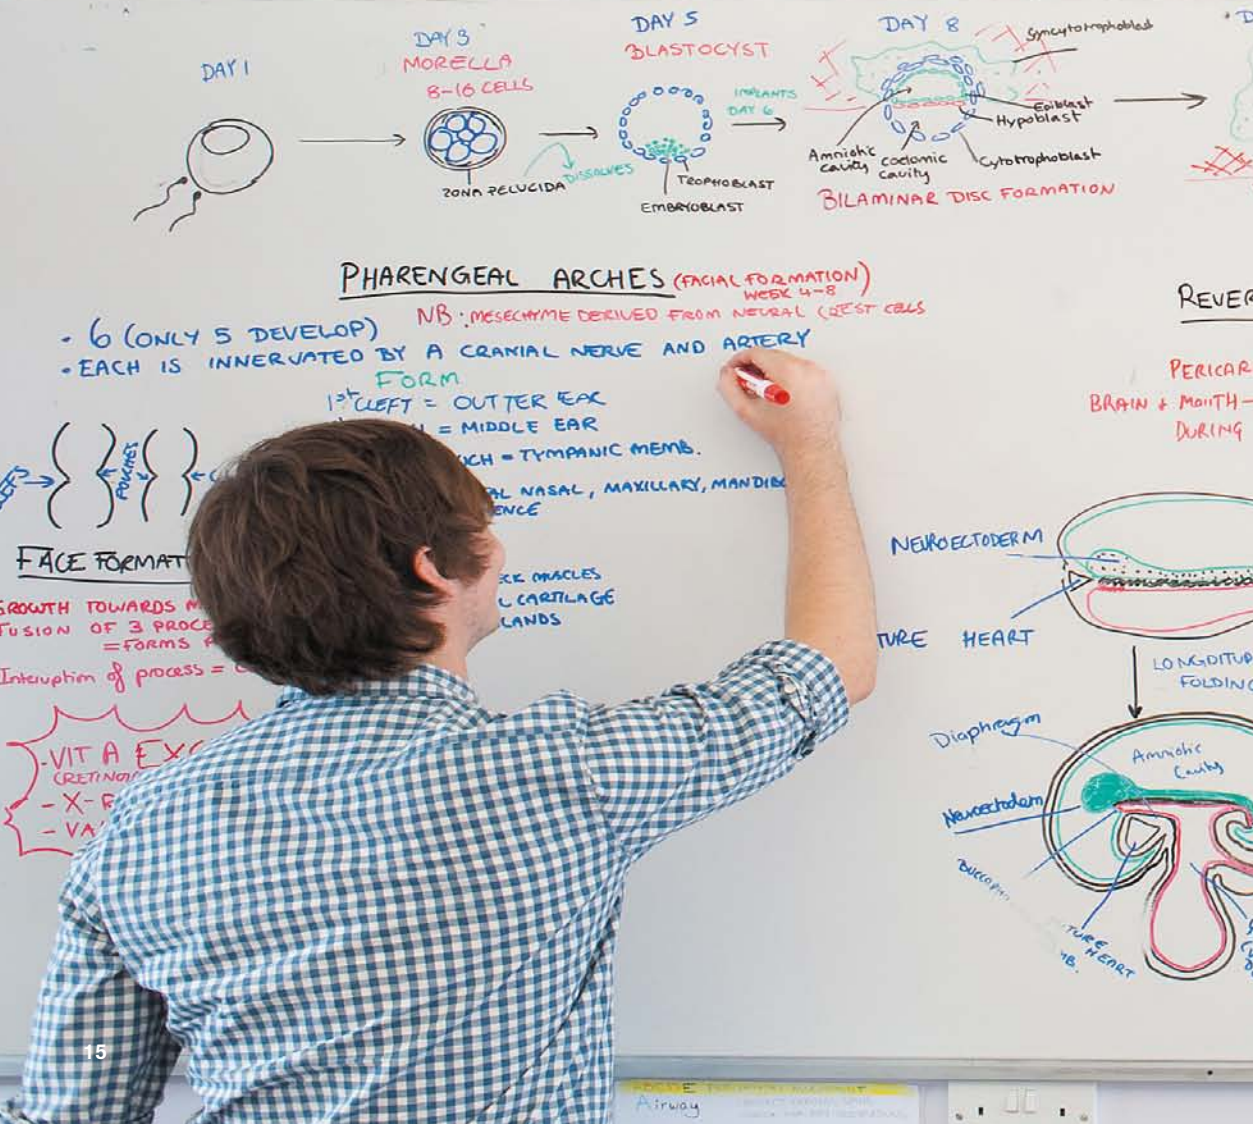 DAY 1
DAY 3
MORELLA
8-16 CELLS
ZONA PELUCIDA
DISSOLVES
DAY 5
BLASTOCYST
TROPHOBLAST
EMBRYOBLAST
IMPLANTS
DAY 6
DAY 8
Syncytotrophoblast
Epiblast
Hypoblast
Cytotrophoblast
Amniotic
cavity
coelomic
cavity
BILAMINAR DISC FORMATION
PHARENGEAL ARCHES (FACIAL FORMATION)
WEEK 4-8
NB: MESECHYME DERIVED FROM NEURAL CREST CELLS
• 6 (ONLY 5 DEVELOP)
• EACH IS INNERVATED BY A CRANIAL NERVE AND ARTERY
FORM
1st CLEFT = OUTTER EAR
= MIDDLE EAR
= TYMPANIC MEMB.
NASAL, MAXILLARY, MANDIB
POUCHES
MUSCLES
CARTILAGE
FACE FORMAT
GROWTH TOWARDS M
FUSION OF 3 PROCE
= FORMS
Interuption of process =
- VIT A EX
(RETINO
- X-R
- VA
REVER
PERICAR
BRAIN + MOUTH-
DURING
NEUROECTODERM
TURE HEART
LONGDITUD
FOLDING
Diaphragm
Amniotic
Cavity
Neuroectoderm
TURE
HEART
15
Airway